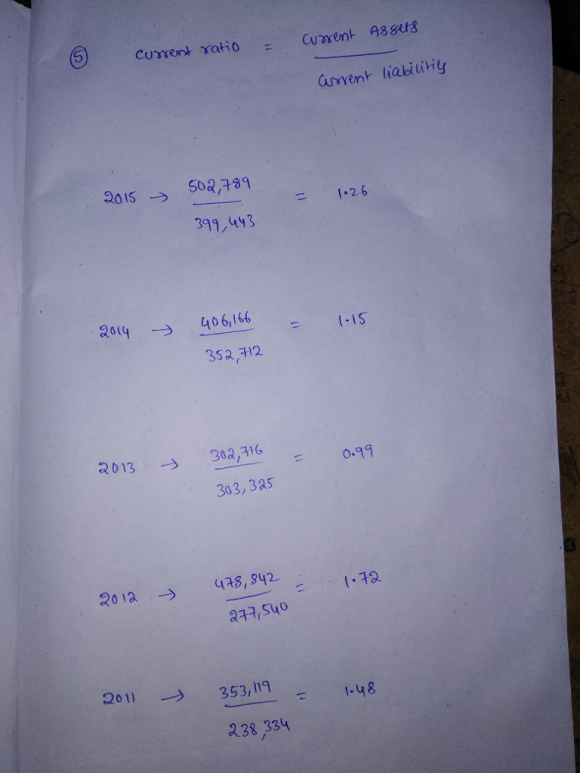 5 Current ratio = Current Assets
Current liabilities
2015 → 502,789 = 1.26
399,443
2014 → 406,166 = 1.15
352,712
2013 → 302,716 = 0.99
303,325
2012 → 478,842 = 1.72
277,540
2011 → 353,119 = 1.48
238,334